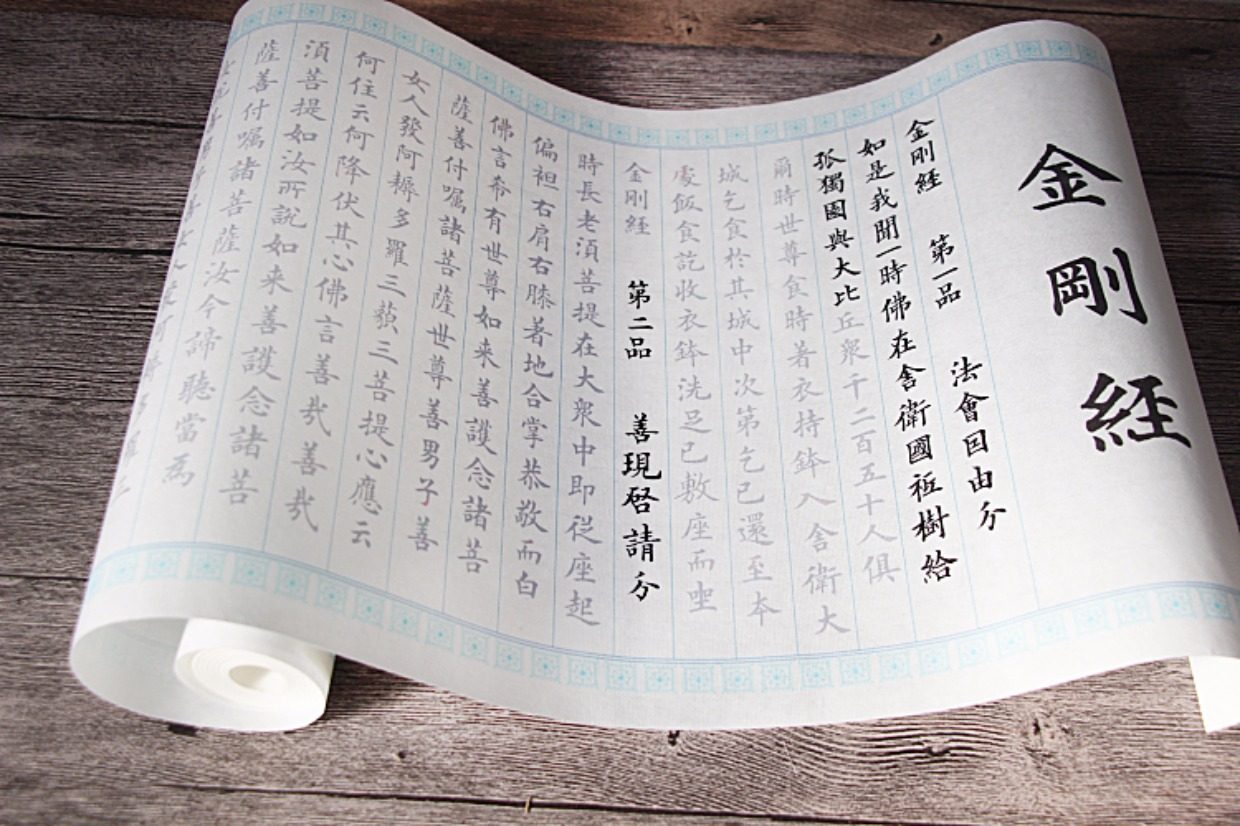 金剛経
金剛経 第一品 法會因由分
如是我聞一時佛在舍衛國祇樹給
孤獨園與大比丘衆千二百五十人俱
爾時世尊食時著衣持鉢入舍衛大
城乞食於其城中次第乞已還至本
處飯食訖收衣鉢洗足已敷座而坐
金剛経 第二品 善現啓請分
時長老須菩提在大衆中即從座起
偏袒右肩右膝著地合掌恭敬而白
佛言希有世尊如来善護念諸菩
薩善付囑諸菩薩世尊善男子善
女人發阿耨多羅三藐三菩提心應云
何住云何降伏其心佛言善哉善哉
須菩提如汝所説如来善護念諸菩
薩善付囑諸菩薩汝今諦聽當為
子善女人